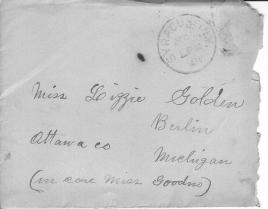 SYRACUSE
Miss Lizzie Golden
Berlin
Ottawa co
Michigan
(in care Miss Goodno)